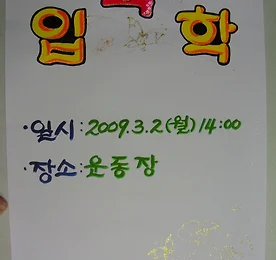 입학
·일시:2009.3.2(월)14:00
·장소:운동장